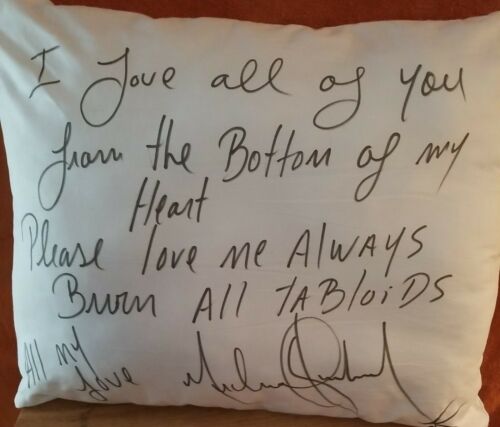 I love all of you
from the Bottom of my
Heart
Please love me AlwAYS
Burn All TABloiDS
All my
love Michael Jackson